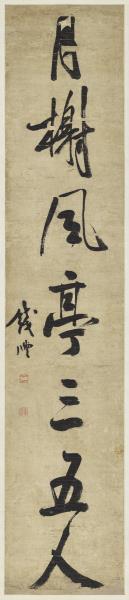 月榭風亭三五人
錢灃